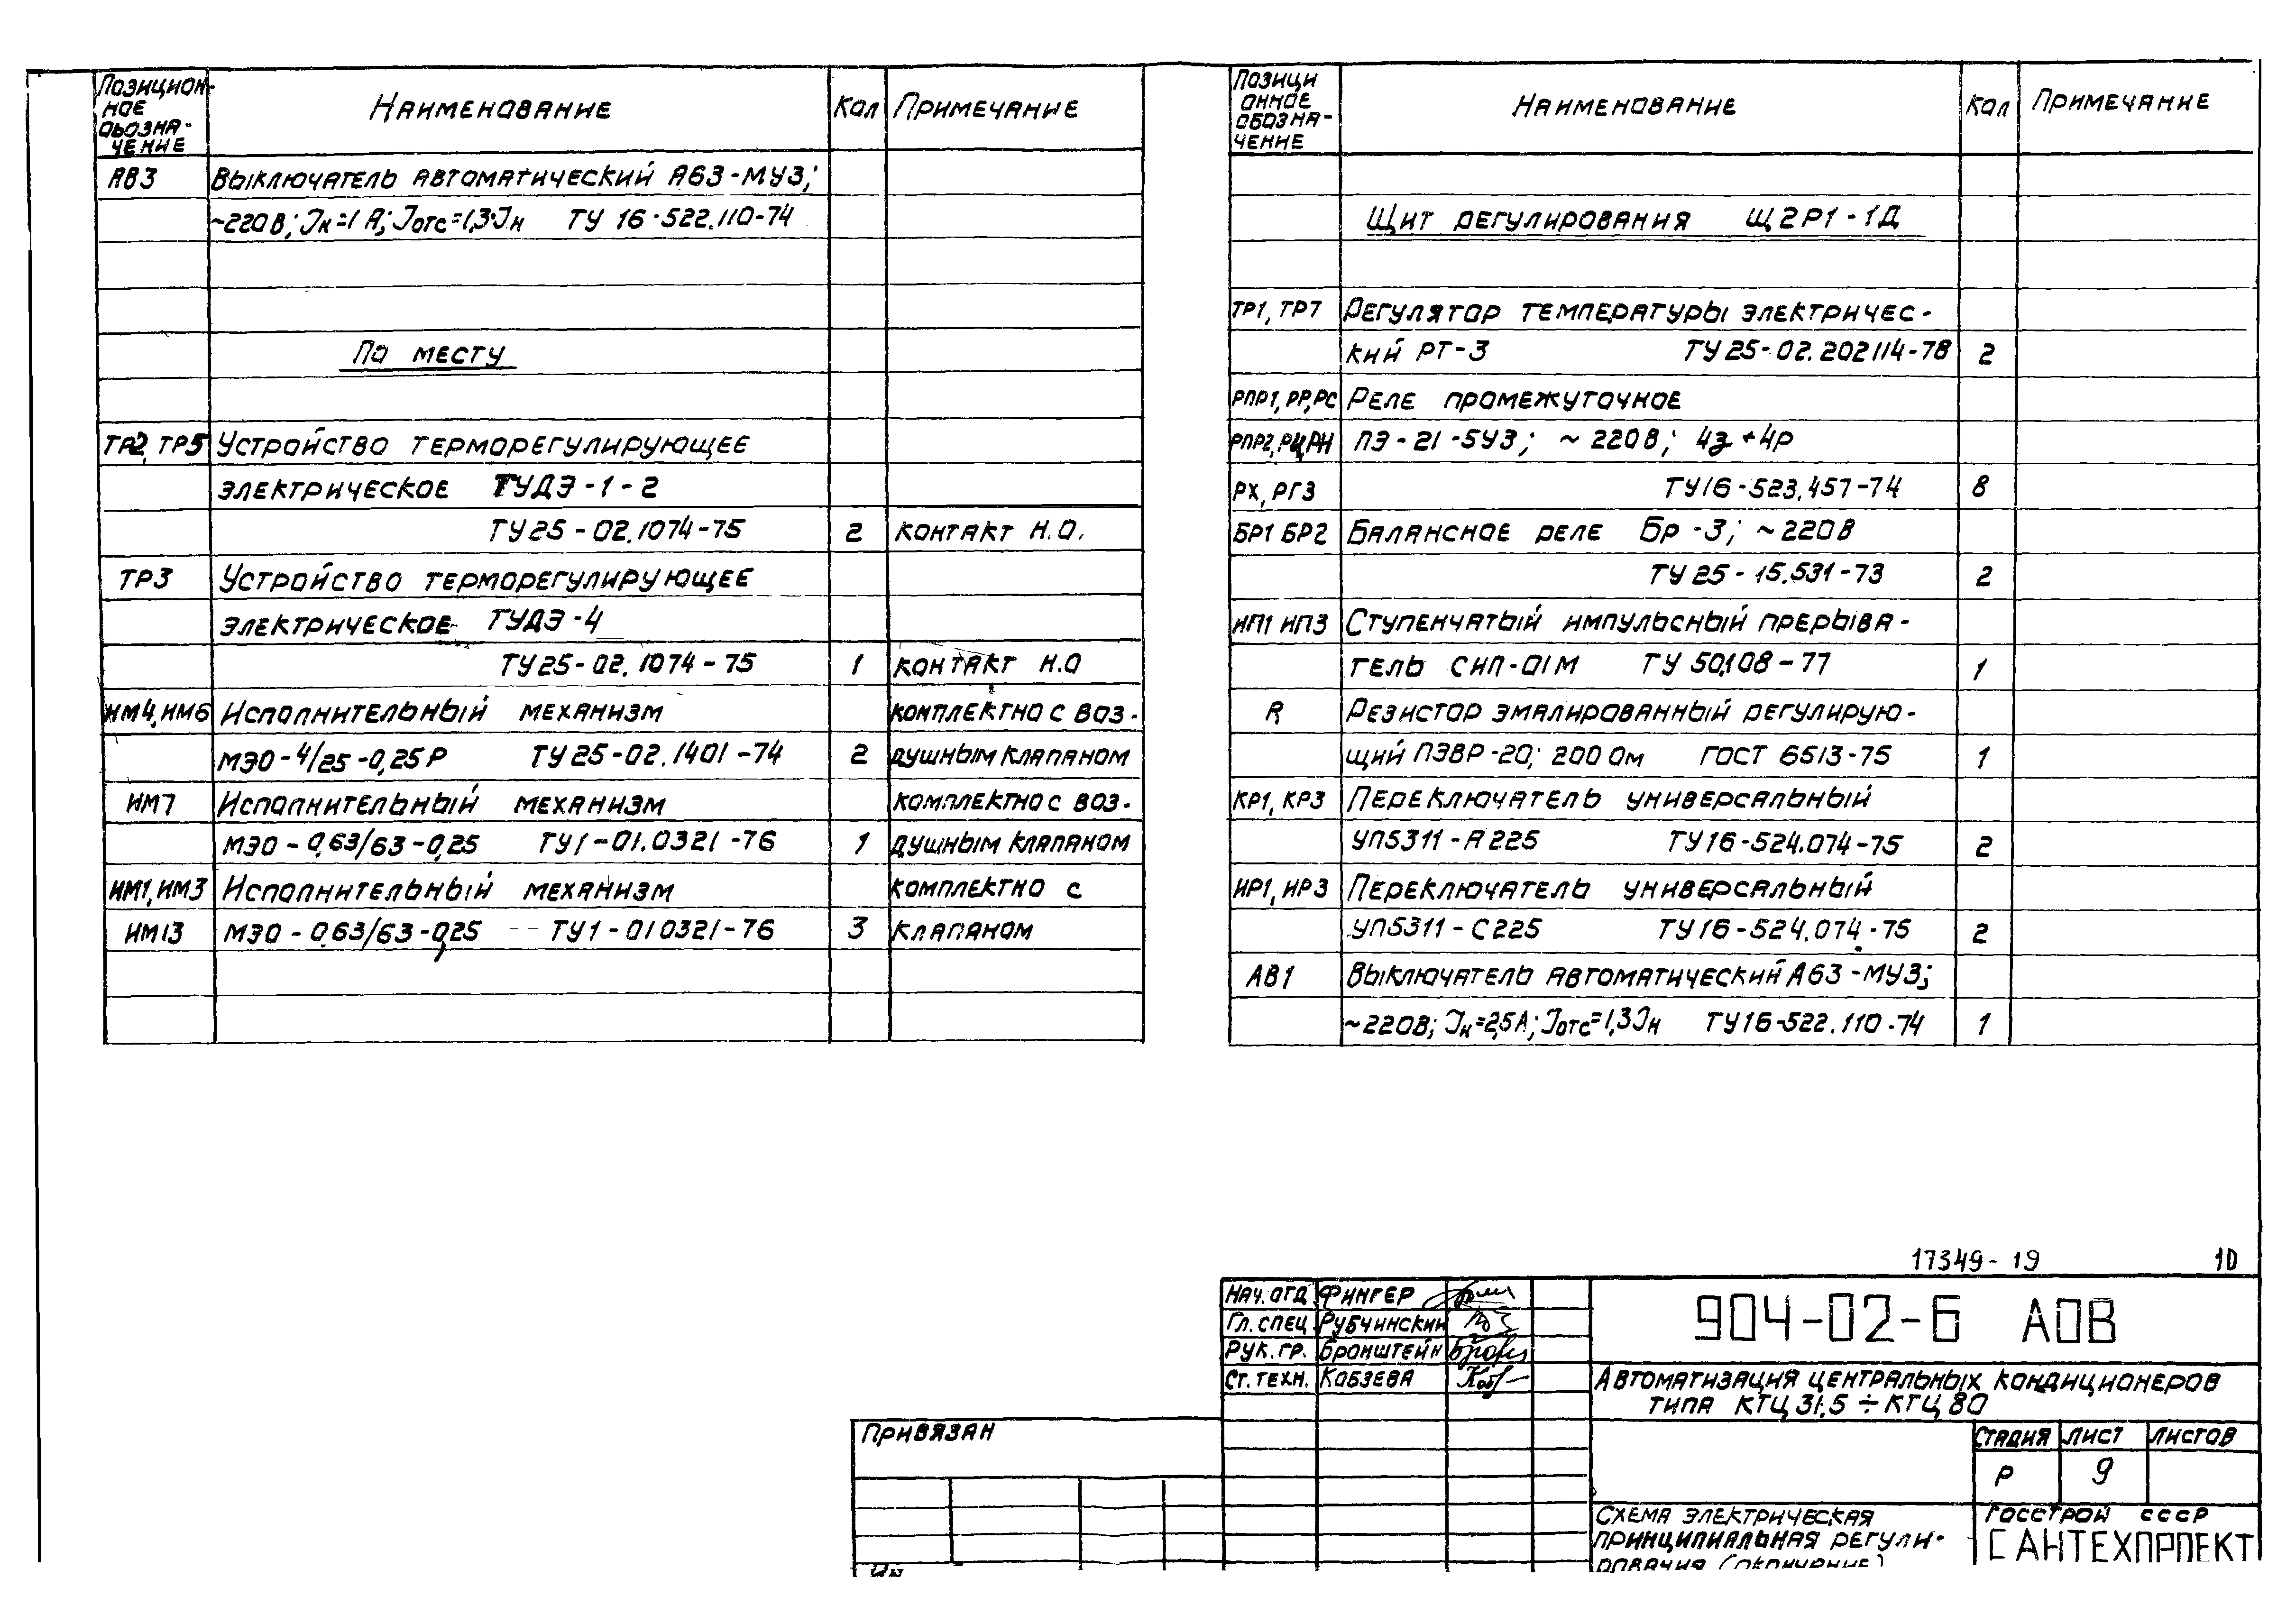 Позицион-
ное
обозна-
чение
Наименование
Кол
Примечание
АВ3 Выключатель автоматический А63-МУ3;
~220В; Jн=1А; Jотс=1,3Jн ТУ 16-522.110-74
По месту
ТР2, ТР5 Устройство терморегулирующее
электрическое ТУДЭ-1-2
ТУ25-02.1074-75 2 контакт Н.О.
ТР3 Устройство терморегулирующее
электрическое ТУДЭ-4
ТУ25-02.1074-75 1 контакт Н.О
ИМ4, ИМ6 Исполнительный механизм комплектно с воз-
МЭО-4/25-0,25Р ТУ25-02.1401-74 2 душным клапаном
ИМ7 Исполнительный механизм комплектно с воз-
МЭО-0,63/63-0,25 ТУ1-01.0321-76 1 душным клапаном
ИМ1, ИМ3 Исполнительный механизм комплектно с
ИМ13 МЭО-0,63/63-0,25 ТУ1-010321-76 3 клапаном
Позици
онное
обозна-
чение
Наименование
Кол
Примечание
Щит регулирования Щ2Р1-1Д
ТР1, ТР7 Регулятор температуры электричес-
кий РТ-3 ТУ25-02.202114-78 2
РПР1, РР, РС Реле промежуточное
РПР2, РЦ, РН ПЭ-21-5У3; ~220В; 4з+4р
РХ, РГ3 ТУ16-523.457-74 8
БР1 БР2 Балансное реле Бр-3; ~220В
ТУ25-15.531-73 2
ИП1 ИП3 Ступенчатый импульсный прерыва-
тель СИП-01М ТУ 50.108-77 1
R Резистор эмалированный регулирую-
щий ПЭВР-20; 200 Ом ГОСТ 6513-75 1
КР1, КР3 Переключатель универсальный
УП5311-А225 ТУ16-524.074-75 2
ИР1, ИР3 Переключатель универсальный
УП5311-С225 ТУ16-524.074-75 2
АВ1 Выключатель автоматический А63-МУ3;
~220В; Jн=2,5А; Jотс=1,3Jн ТУ16-522.110-74 1
17349-19 10
Нач. отд Фингер
Гл. спец Рубчинский
Рук. гр. Бронштейн
Ст. техн. Кобзева
904-02-6 АОВ
Автоматизация центральных кондиционеров
типа КТЦ 31,5 ÷ КТЦ 80
Привязан
Стадия Лист Листов
Р 9
Схема электрическая
принципиальная регули-
рования (окончание)
Госстрой СССР
САНТЕХПРОЕКТ